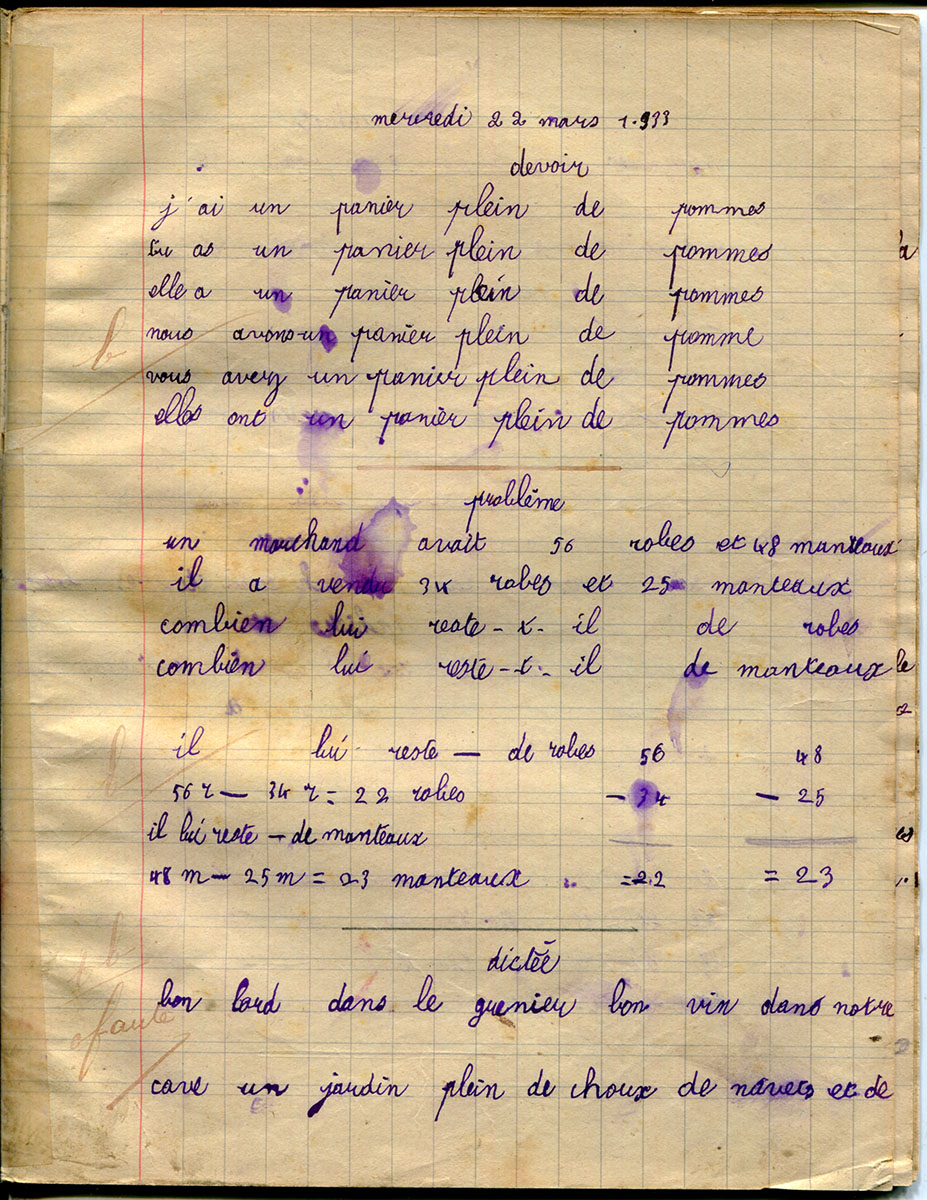 mercredi 22 mars 1.933
devoir
j'ai un panier plein de pommes
tu as un panier plein de pommes
elle a un panier plein de pommes
nous avons un panier plein de pomme
vous avez un panier plein de pommes
elles ont un panier plein de pommes
problème
un marchand avait 56 robes et 48 manteaux
il a vendu 34 robes et 25 manteaux
combien lui reste-t-il de robes
combien lui reste-t-il de manteaux
il lui reste — de robes 56 48
56 r — 34 r = 22 robes — 34 — 25
il lui reste — de manteaux
48 m — 25 m = 23 manteaux = 22 = 23
dictée
bon lard dans le grenier bon vin dans notre
o faute
cave un jardin plein de choux de navets et de